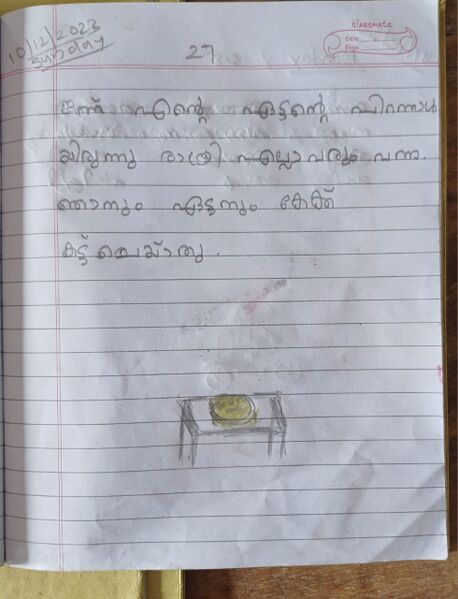 10/12/2023
Sunday
27
classmate
Date
Page
ഇന്ന് എന്റെ ഏട്ടന്റെ പിറന്നാൾ
യിരുന്നു രാത്രി എല്ലാവരും വന്നു.
ഞാനും ഏട്ടനും കേക്ക്
കട്ട് ചെയ്തു.